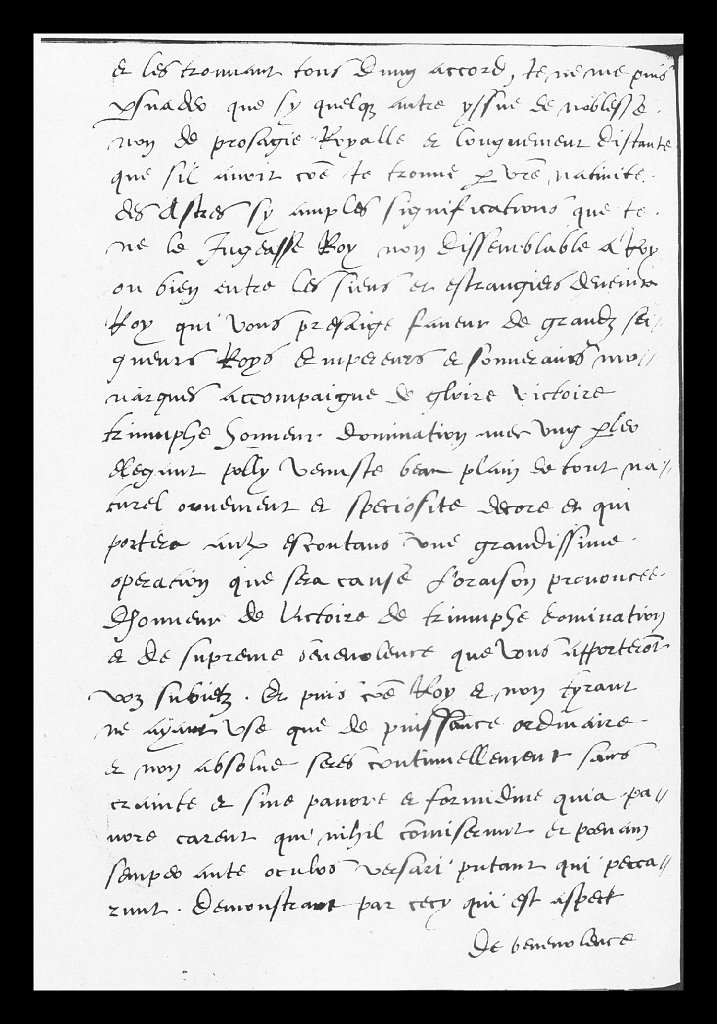 et les trouvant tous d'ung accord, ie ne me puis
psuader que sy quelq autre yssue de noblesse
non de prosagie Royalle et longuement distante
que sil avoit coe ie trouve p vre nativite
des Astres sy amples significations que ie
ne le Jugeasse Roy non dissemblable a Roy
ou bien entre les siens et estrangiers devenir
Roy qui vous presaige faveur de grandz sei-
gneurs Roys Empereurs et souverains mo-
narques accompaigne de gloire victoire
triumphe honneur domination avec ung pler
elegant polly venuste beau plain de tout na-
turel ornement et speciosite decore et qui
portera aux escoutans une grandissime
operation que sera cause l'oraison prononcee
d'honneur de victoire de triumphe domination
et de supreme benevolence que vous apporteront
voz subietz. Et puis coe Roy et non tyrant
ne ayant use que de puissance ordinaire
et non absolue seres continuellement sans
crainte et sine pavore et formidine quia pa-
vore carent qui nihil comiserunt et poenam
semper ante oculos versari putant qui pecca-
runt. Demonstrant par cecy qui est aspect
de benevolence